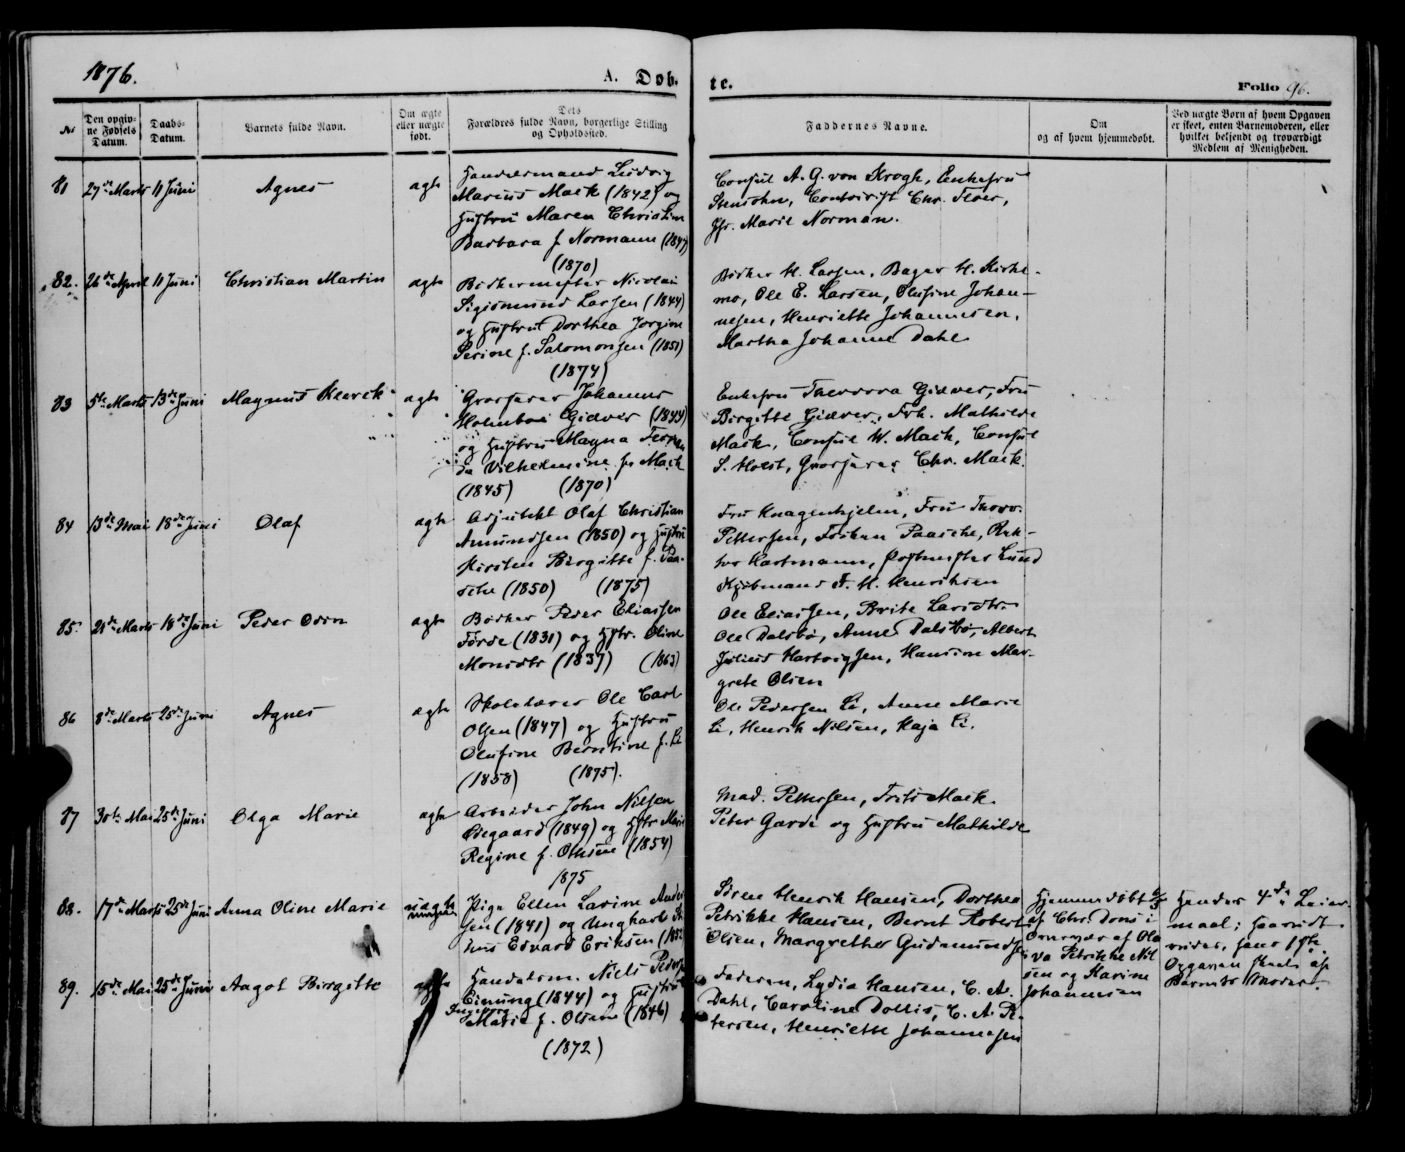 1876.
A. Døb-
te.
Folio 96.
№
Den opgiv-
ne Fødsels
Datum.
Daabs-
Datum.
Barnets fulde Navn.
Om ægte
eller uægte
født.
Dets
Forældres fulde Navn, borgerlige Stilling
og Opholdssted.
Faddernes Navne.
Om
og af hvem hjemmedøbt.
Ved uægte Børn af hvem Opgaven
er skeet, enten Barnemoderen, eller
hvilket velkjendt og troværdigt
Medlem af Menigheden.
81 27de Marts 11 Juni Agnes ægte
Handelsmand Ludvig
Marius Mack (1842) og
Hustru Maren Christine
Barbara f. Normann (1847)
(1870)
Consul A. G. von Krogh, Enkefru
Chr.
Jfr. Marie Norman.
82. 26de April 11 Juni Christian Martin ægte
Bødkermester Nicolai
Sigismund Larsen (1844)
og Hustru Dorthea Jørgine
Serine f. Salomonsen (1851)
(1874)
Bødker H. Larsen, Bager H. Kirke-
mo, Ole E. Larsen, Olufine Johan-
nesen, Henriette Johannesen,
Martha Johanne Dahl
83 5te Marts 13de Juni Magnus ægte
Grosserer Johannes
Holmboe Giæver (1844)
og Hustru Magna
Vilhelmine f. Mack
(1845) (1870)
Enkefru Theodora Giæver, Fru
Birgitte Giæver, Frk. Mathilde
Mack, Consul W. Mack, Consul
S. Holst, Grosserer Chr. Mack.
84 13de Mai 18de Juni Olaf ægte
Adjunkt Olaf Christian
Amundsen (1850) og Hustru
Kirsten Birgitte f. Paa-
sche (1850) (1875)
Fru Knagenhjelm, Fru Thorv.
Pettersen, Frøken Paasche, Rek-
tor Hartmann, Postmester Lund
Kjøbmand F. H. Henriksen
85. 21de Marts 18de Juni Peder Odin ægte
Bødker Peder Eliassen
Førde (1831) og Hstr. Oline
Monsdtr (1837) (1863)
Ole Eliassen, Brite Larsdtr.
Ole Dalsbø, Anne Dalsbø, Albert
Julius Hartvigsen, Hansine Mar-
grete Olsen
86 8de Marts 25de Juni Agnes ægte
Skolelærer Ole Carl
Olsen (1847) og Hustru
Olufine Berntine f. Li
(1858) (1875).
Ole Pedersen Li, Anne Marie
Li, Henrik Nilsen, Kaja Li.
87 30te Mai 25de Juni Olga Marie ægte
Arbeider John Nilsen
Ødegaard (1849) og Hstr. Marie
Regine f. (1854)
1875
Mad. Pettersen, Frits Mack.
Peter Garde og Hustru Mathilde
88. 17de Marts 25de Juni Anna Oline Marie uægte
Pige Ellen Larine Ander
sen (1841) og Ungkarl
Edvard Eriksen (1852
Sørene Henrik Hansen, Dorthea
Petrikke Hansen, Bernt Robert
Olsen, Margrethe Gudmunds
Hjemmedøbt
af Chr. Dons i
af Ola
va Petrikke Nil
sen og Karine
Johannesen
Hendes 4de Leier-
maal;
hans 1ste
Opgaven skeet af
Barnets Moder.
89. 15de Mai 25de Juni Aagot Birgitte ægte
Handelsm. Niels Peder
(1844) og Hustru
Ingeborg
Marie f. Olsen (1846)
(1872)
Faderen, Lydia Hansen, C. A.
Dahl, Caroline Dollis, C. A. Pe-
tersen, Henriette Johannesen